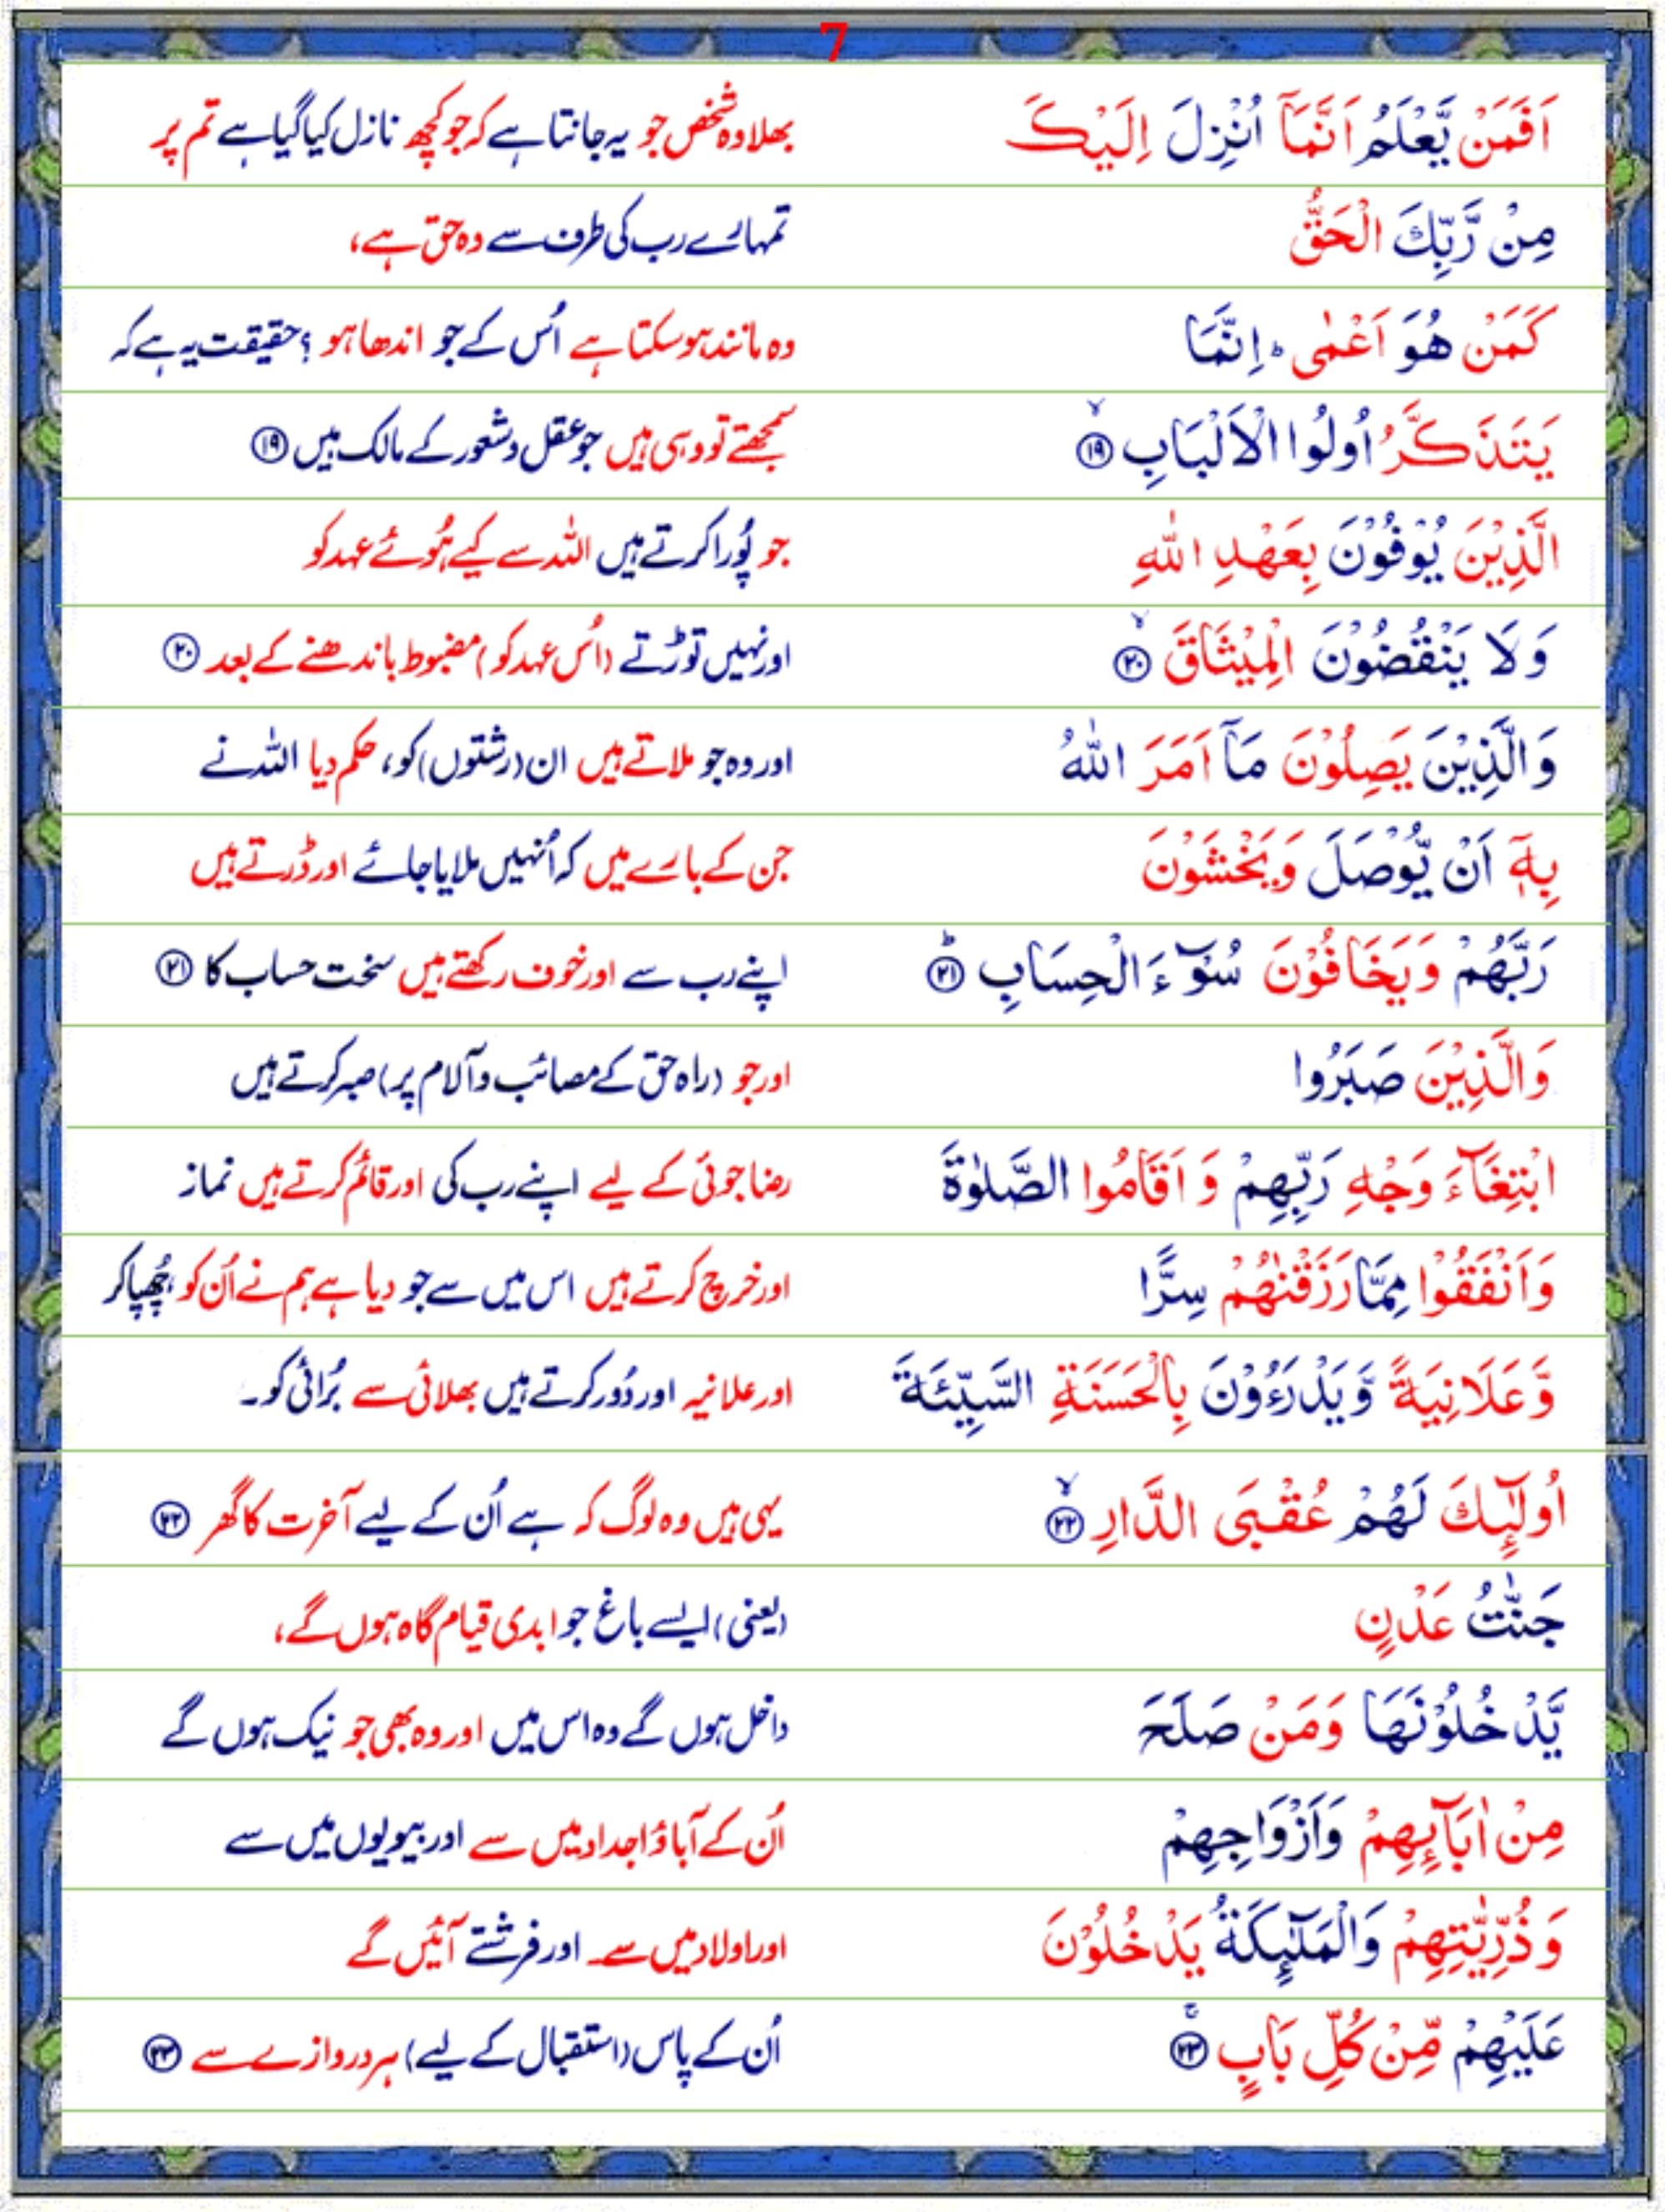 7
اَفَمَنْ يَّعْلَمُ اَنَّمَآ اُنْزِلَ اِلَيْكَ بھلا وہ شخص جو یہ جانتا ہے کہ جو کچھ نازل کیا گیا ہے تم پر
مِنْ رَّبِّكَ الْحَقُّ تمہارے رب کی طرف سے وہ حق ہے،
كَمَنْ هُوَ اَعْمٰى ؕ اِنَّمَا وہ مانند ہوسکتا ہے اُس کے جو اندھا ہو ؟ حقیقت یہ ہے کہ
يَتَذَكَّرُ اُولُوا الْاَلْبَابِ ۙ﴿۱۹﴾ سمجھتے تو وہی ہیں جو عقل و شعور کے مالک ہیں ﴿۱۹﴾
الَّذِيْنَ يُوْفُوْنَ بِعَهْدِ اللّٰهِ جو پُورا کرتے ہیں اللہ سے کیے ہُوئے عہد کو
وَلَا يَنْقُضُوْنَ الْمِيْثَاقَ ۙ﴿۲۰﴾ اور نہیں توڑتے (اُس عہد کو) مضبوط باندھنے کے بعد ﴿۲۰﴾
وَالَّذِيْنَ يَصِلُوْنَ مَآ اَمَرَ اللّٰهُ اور وہ جو ملاتے ہیں ان (رشتوں) کو، حکم دیا اللہ نے
بِهٖٓ اَنْ يُّوْصَلَ وَيَخْشَوْنَ جن کے بارے میں کہ اُنہیں ملایا جائے اور ڈرتے ہیں
رَبَّهُمْ وَيَخَافُوْنَ سُوْٓءَ الْحِسَابِ ؕ﴿۲۱﴾ اپنے رب سے اور خوف رکھتے ہیں سخت حساب کا ﴿۲۱﴾
وَالَّذِيْنَ صَبَرُوا اور جو (راہ حق کے مصائب و آلام پر) صبر کرتے ہیں
ابْتِغَآءَ وَجْهِ رَبِّهِمْ وَ اَقَامُوا الصَّلٰوةَ رضا جوئی کے لیے اپنے رب کی اور قائم کرتے ہیں نماز
وَاَنْفَقُوْا مِمَّا رَزَقْنٰهُمْ سِرًّا اور خرچ کرتے ہیں اس میں سے جو دیا ہے ہم نے اُن کو، چُھپا کر
وَّعَلَانِيَةً وَّيَدْرَءُوْنَ بِالْحَسَنَةِ السَّيِّئَةَ اور علانیہ اور دُور کرتے ہیں بھلائی سے بُرائی کو۔
اُولٰٓئِكَ لَهُمْ عُقْبَى الدَّارِ ۙ﴿۲۲﴾ یہی ہیں وہ لوگ کہ ہے اُن کے لیے آخرت کا گھر ﴿۲۲﴾
جَنّٰتُ عَدْنٍ (یعنی) ایسے باغ جو ابدی قیام گاہ ہوں گے،
يَّدْخُلُوْنَهَا وَمَنْ صَلَحَ داخل ہوں گے وہ اس میں اور وہ بھی جو نیک ہوں گے
مِنْ اٰبَآئِهِمْ وَاَزْوَاجِهِمْ اُن کے آباؤ اجداد میں سے اور بیویوں میں سے
وَذُرِّيّٰتِهِمْ وَالْمَلٰٓئِكَةُ يَدْخُلُوْنَ اور اولاد میں سے اور فرشتے آئیں گے
عَلَيْهِمْ مِّنْ كُلِّ بَابٍ ۚ﴿۲۳﴾ اُن کے پاس (استقبال کے لیے) ہر دروازے سے ﴿۲۳﴾